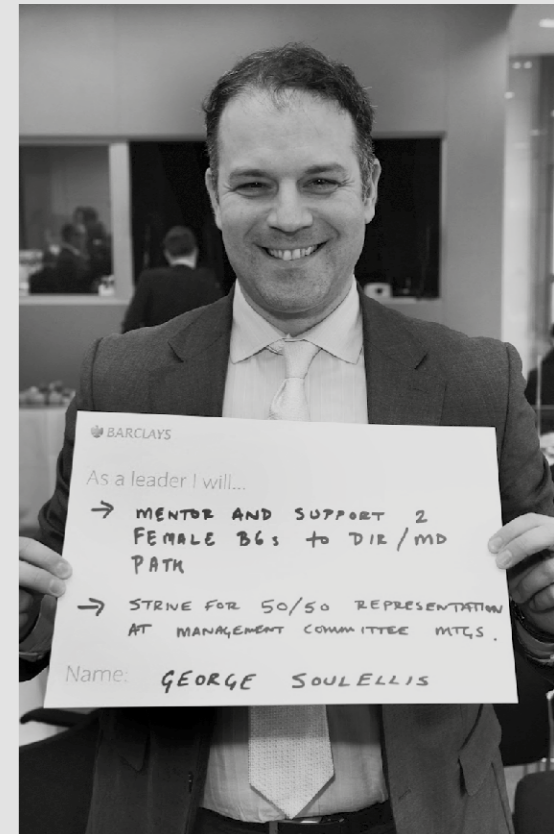 BARCLAYS
As a leader I will...
→ MENTOR AND SUPPORT 2
FEMALE B6s to DIR/MD
PATH
→ STRIVE FOR 50/50 REPRESENTATION
AT MANAGEMENT COMMITTEE MTGS.
Name: GEORGE SOULELLIS